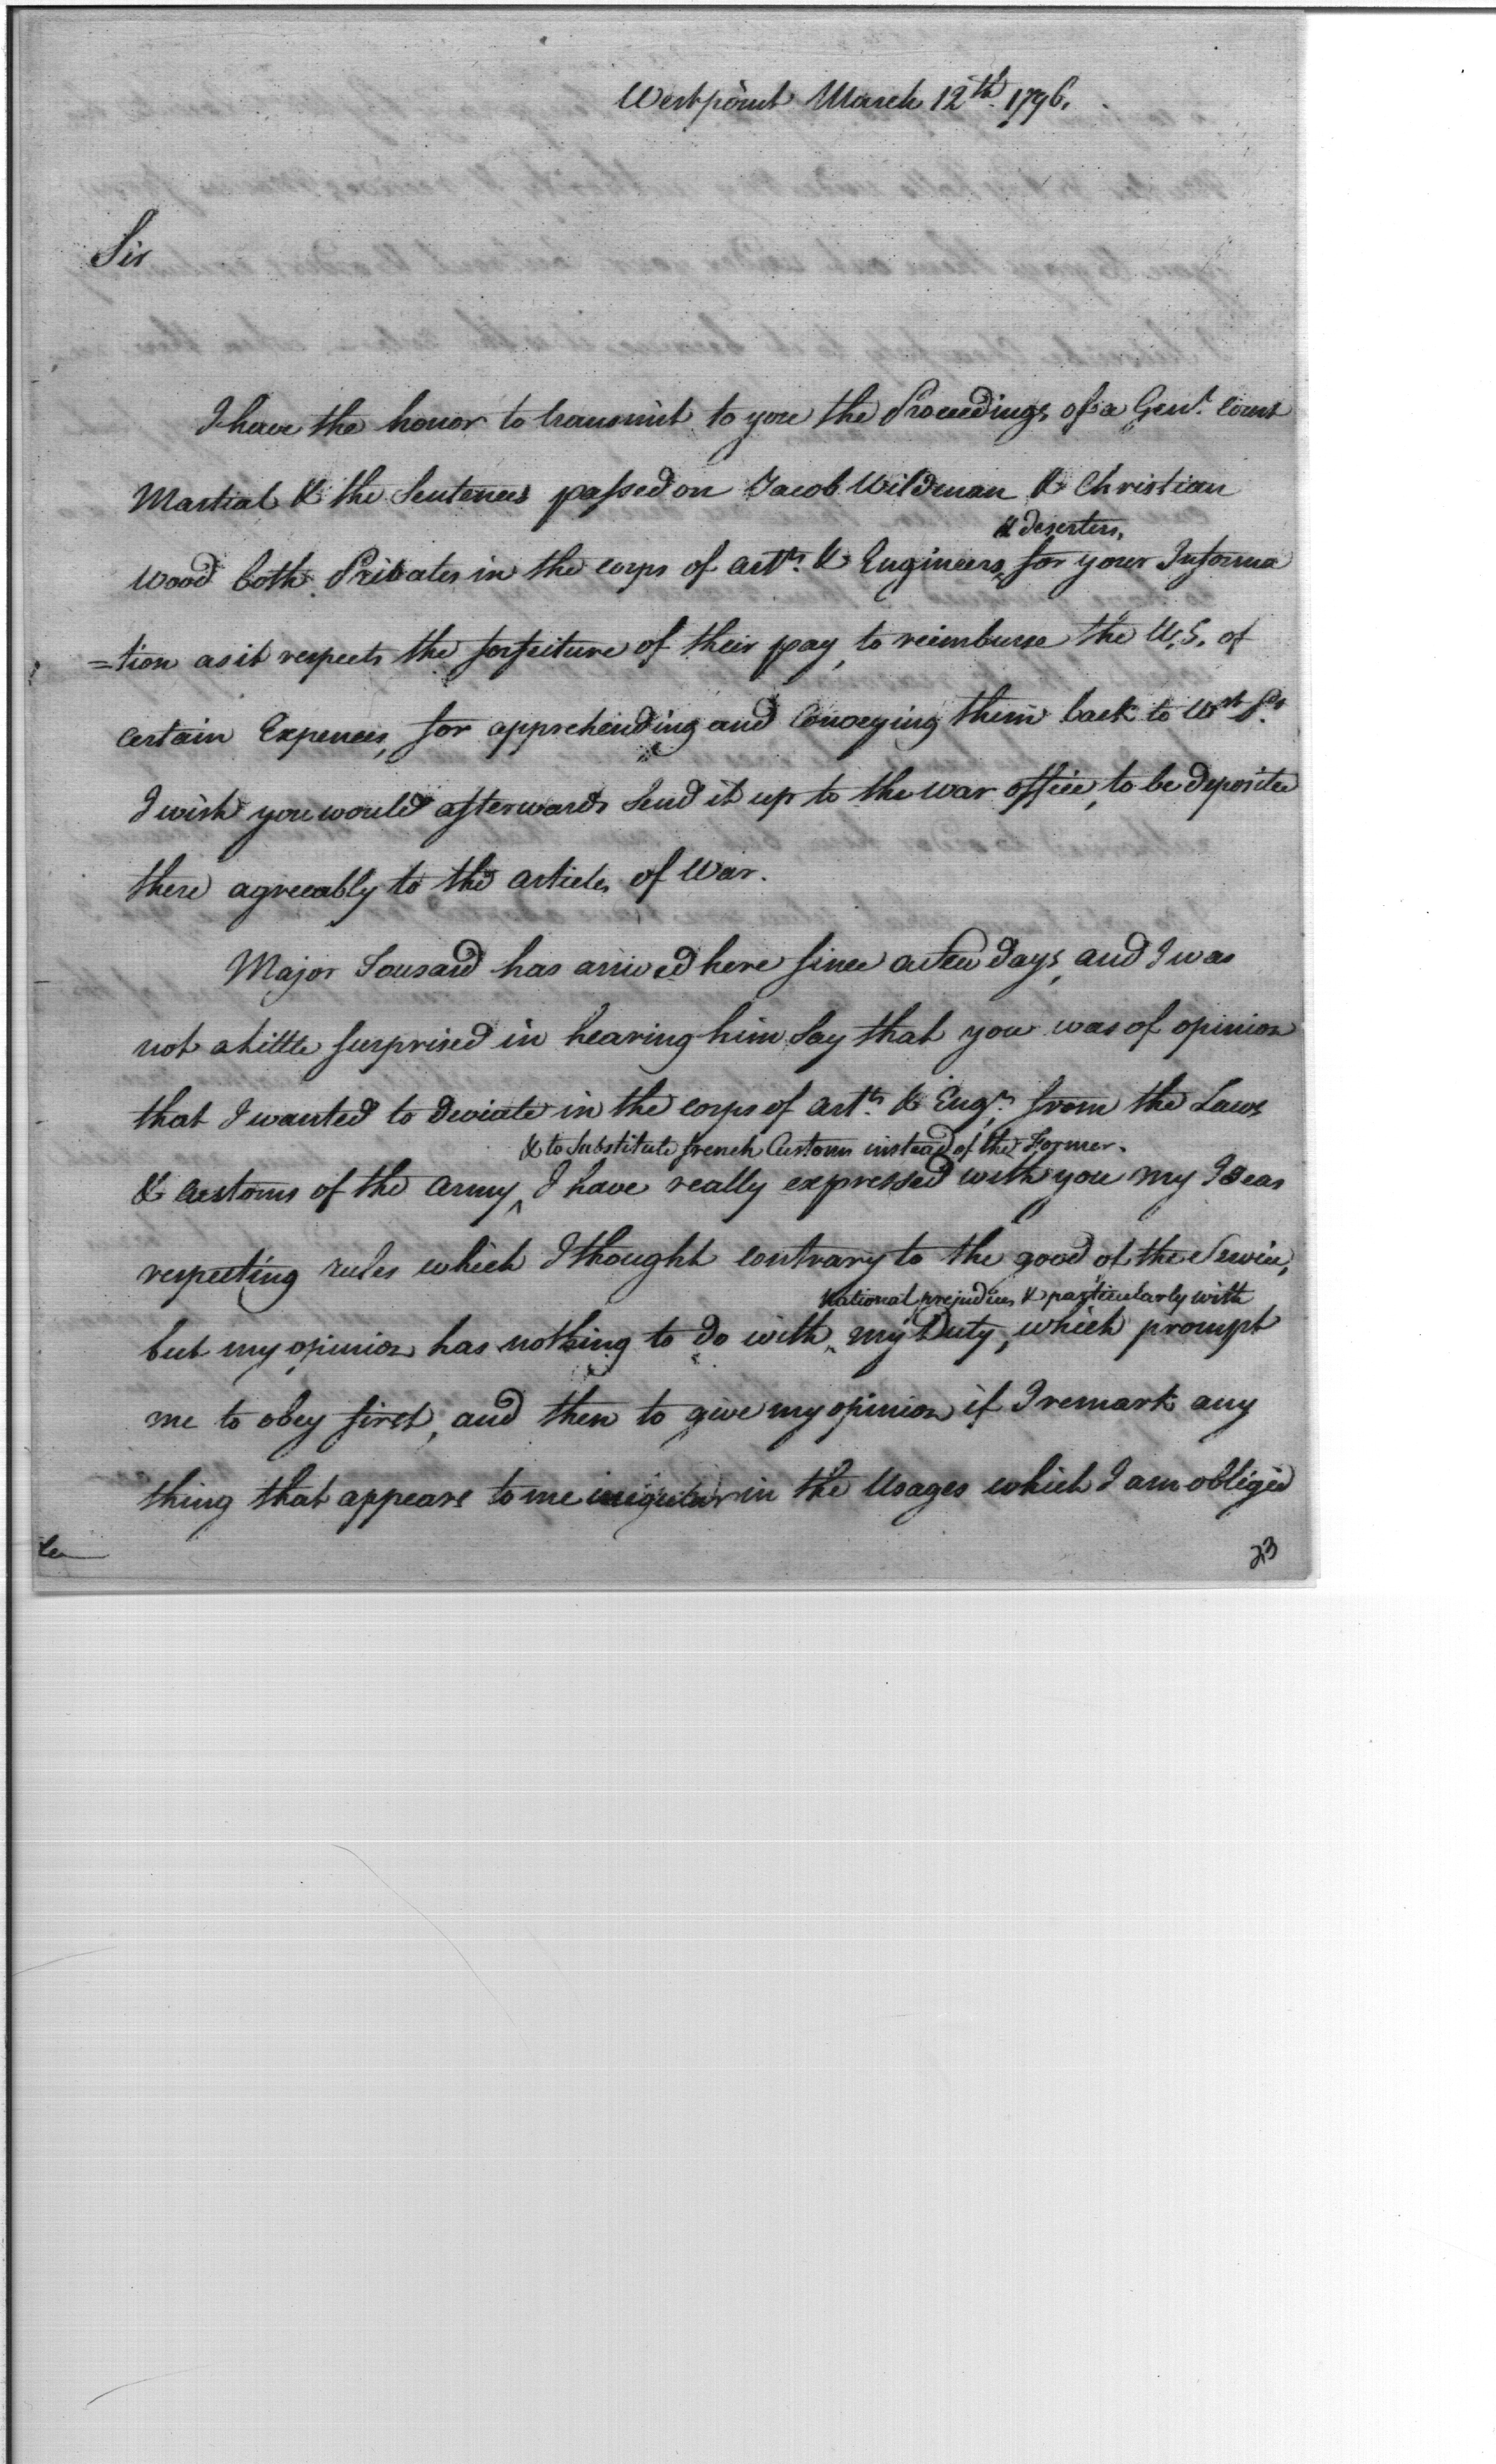 Westpoint March 12th. 1796.
Sir
I have the honor to transmit to you the Proceedings of a Genl. Court
Martial & the Sentences passed on Jacob Wildman & Christian
& deserters,
Wood both Privates in the corps of artts. & Engineers, for your Informa
=tion as it respects the forfeiture of their pay, to reimburse the U.S. of
certain Expences, for apprehending and Conveying them back to Wst Pt.
I wish you would afterwards Send it up to the war office, to be deposited
there agreeably to the articles of War.
Major Tousard has arrived here since a few days, and I was
not a little surprised in hearing him Say that you was of opinion
that I wanted to deviate in the corps of artts. & Engrs. from the Laws
& to Substitute french Customs instead of the Former.
& customs of the army, I have really expressed with you my Ideas
respecting rules which I thought contrary to the good of the Service,
National prejudices & particularly with
but my opinion has nothing to do with my Duty, which prompt
me to obey first, and then to give my opinion if I remark any
thing that appears to me irregular in the Usages which I am obliged
23